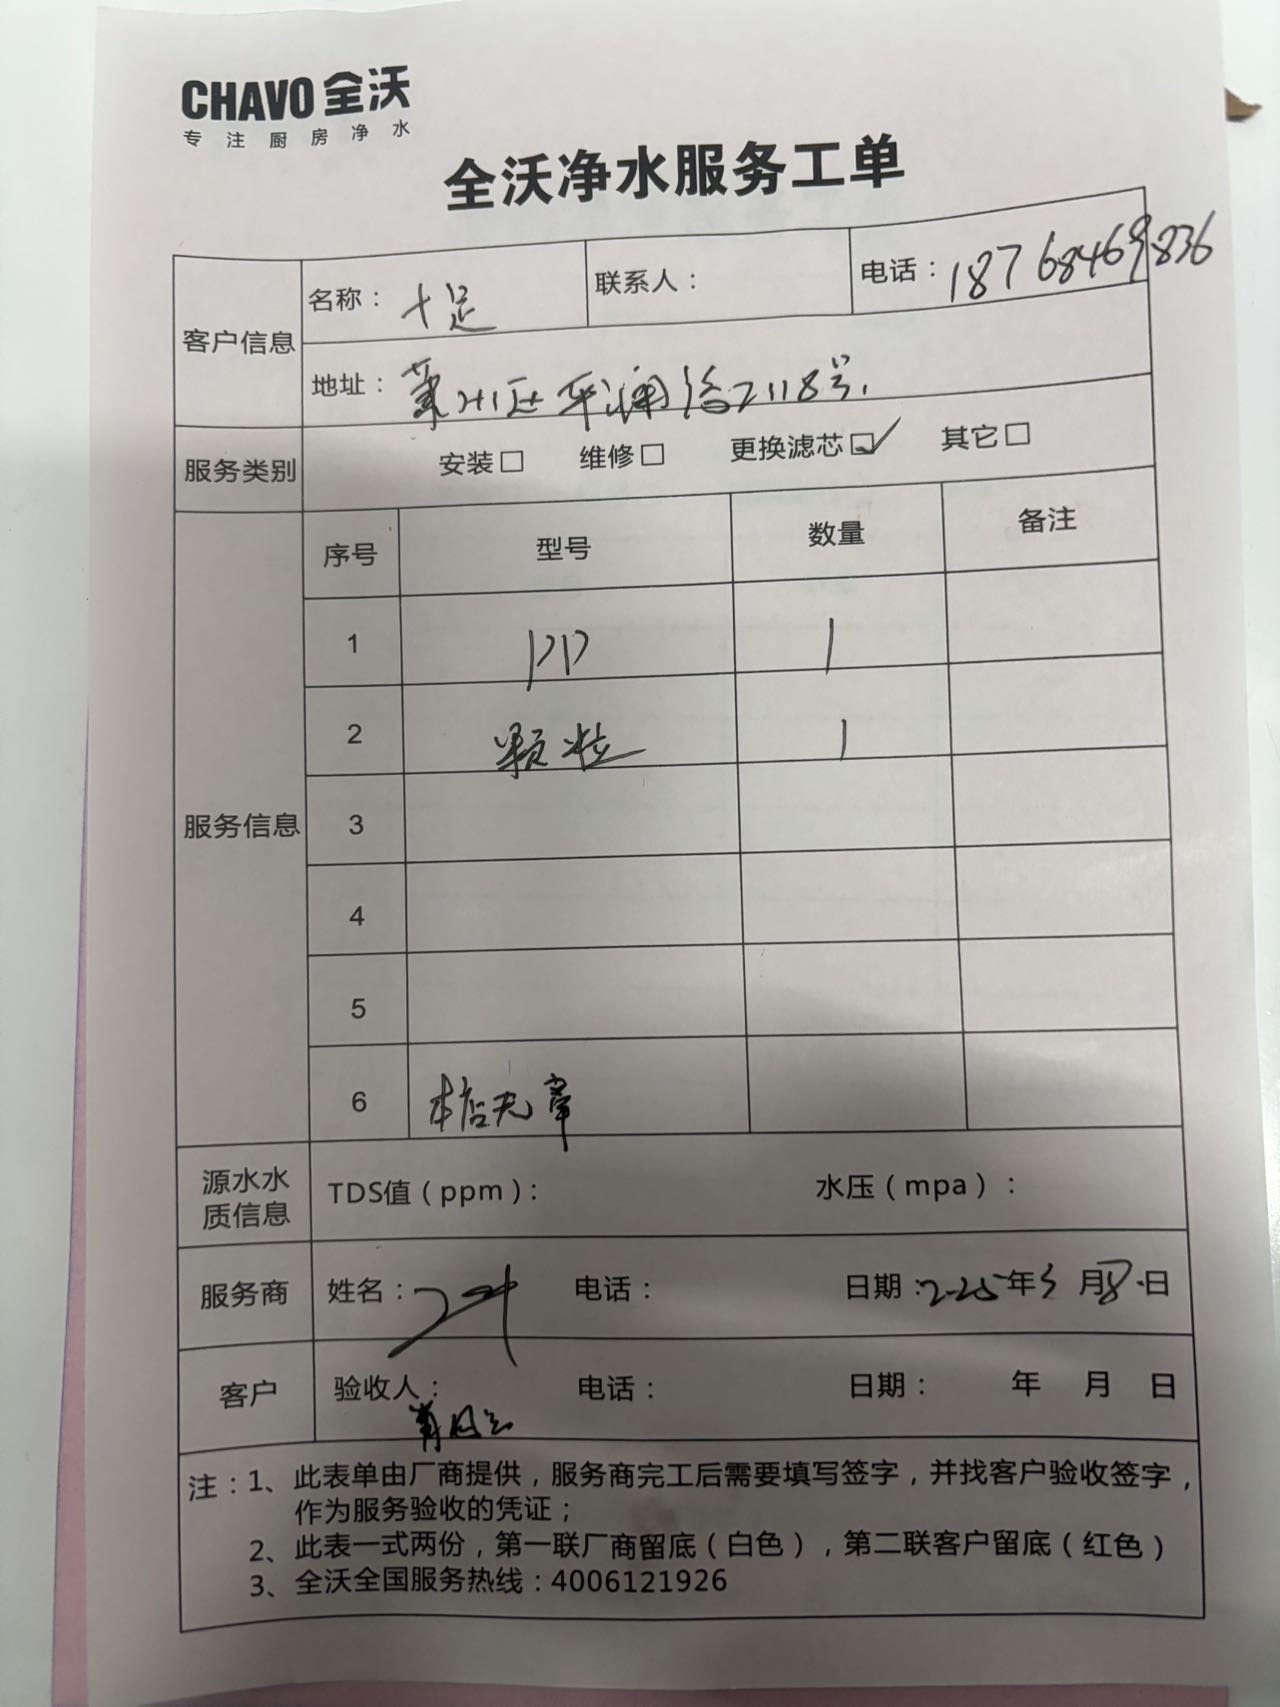 CHAVO 全沃
专注厨房净水
全沃净水服务工单
客户信息
名称：十足
联系人：
电话：18768469836
地址：萧山区平澜路2118号.
服务类别
安装□ 维修□ 更换滤芯□✓ 其它□
服务信息
序号 型号 数量 备注
1 PP 1
2 颗粒 1
3
4
5
6 本店无章
源水水质信息
TDS值（ppm）：
水压（mpa）：
服务商
姓名：
电话：
日期：2025年3月8日
客户
验收人：
电话：
日期： 年 月 日
注：1、此表单由厂商提供，服务商完工后需要填写签字，并找客户验收签字，
作为服务验收的凭证；
2、此表一式两份，第一联厂商留底（白色），第二联客户留底（红色）
3、全沃全国服务热线：4006121926